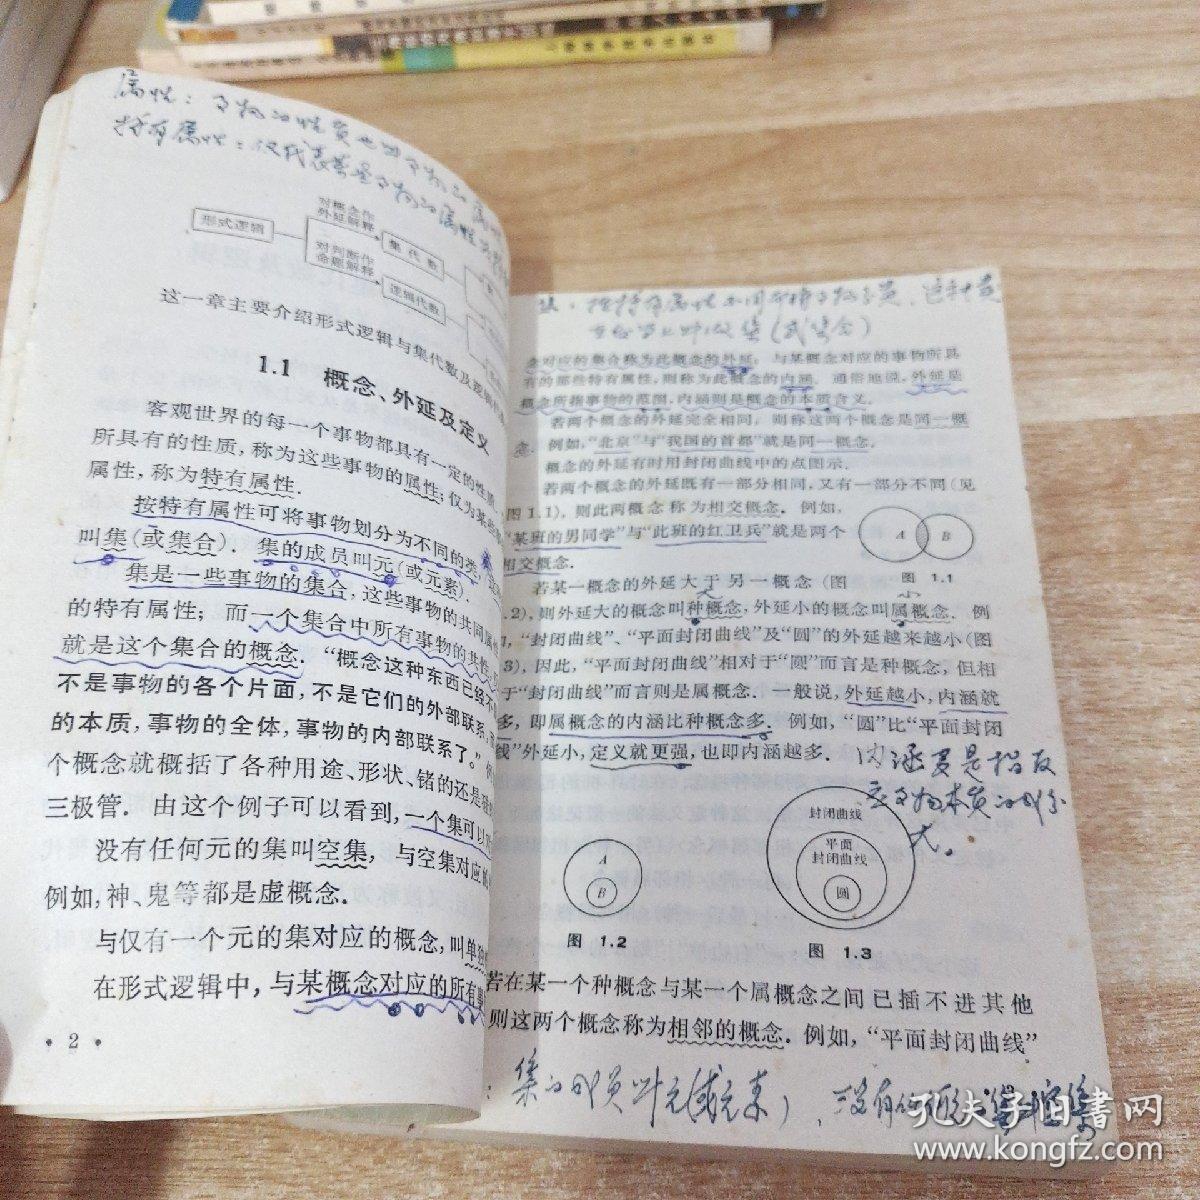 属性：事物的性质
特有属性：仅代表某些事物的属性
形式逻辑
对概念作
外延解释
集代数
对判断作
命题解释
逻辑代数
这一章主要介绍形式逻辑与集代数及逻辑代
1.1 概念、外延及定义
客观世界的每一个事物都具有一定的性质
所具有的性质，称为这些事物的属性；仅为某些
属性，称为特有属性．
按特有属性可将事物划分为不同的类
叫集（或集合）．集的成员叫元（或元素）．
集是一些事物的集合，这些事物的共同属
的特有属性；而一个集合中所有事物的共性，
就是这个集合的概念．“概念这种东西已经不
不是事物的各个片面，不是它们的外部联系，
的本质，事物的全体，事物的内部联系了。”
个概念就概括了各种用途、形状、锗的还是硅
三极管．由这个例子可以看到，一个集可以
没有任何元的集叫空集，与空集对应的
例如，神、鬼等都是虚概念．
与仅有一个元的集对应的概念，叫单独
在形式逻辑中，与某概念对应的所有
• 2 •
念对应的集合称为此概念的外延；与某概念对应的事物所具
有的那些特有属性，则称为此概念的内涵．通俗地说，外延是
概念所指事物的范围，内涵则是概念的本质含义．
若两个概念的外延完全相同，则称这两个概念是同一概
念．例如，“北京”与“我国的首都”就是同一概念．
概念的外延有时用封闭曲线中的点图示．
若两个概念的外延既有一部分相同，又有一部分不同（见
图1.1），则此两概念称为相交概念．例如，
“某班的男同学”与“此班的红卫兵”就是两个
相交概念．
A
B
图 1.1
若某一概念的外延大于另一概念（图
大
小
.2），则外延大的概念叫种概念，外延小的概念叫属概念．例
，“封闭曲线”、“平面封闭曲线”及“圆”的外延越来越小（图
3），因此，“平面封闭曲线”相对于“圆”而言是种概念，但相
于“封闭曲线”而言则是属概念．一般说，外延越小，内涵就
多，即属概念的内涵比种概念多．例如，“圆”比“平面封闭
线”外延小，定义就更强，也即内涵越多．
内涵是指反
应事物本质的
封闭曲线
平面
封闭曲线
圆
A
B
图 1.2
图 1.3
若在某一个种概念与某一个属概念之间已插不进其他
则这两个概念称为相邻的概念．例如，“平面封闭曲线”
集的成员叫元（或元素），没有任何元
孔夫子旧书网
www.kongfz.com